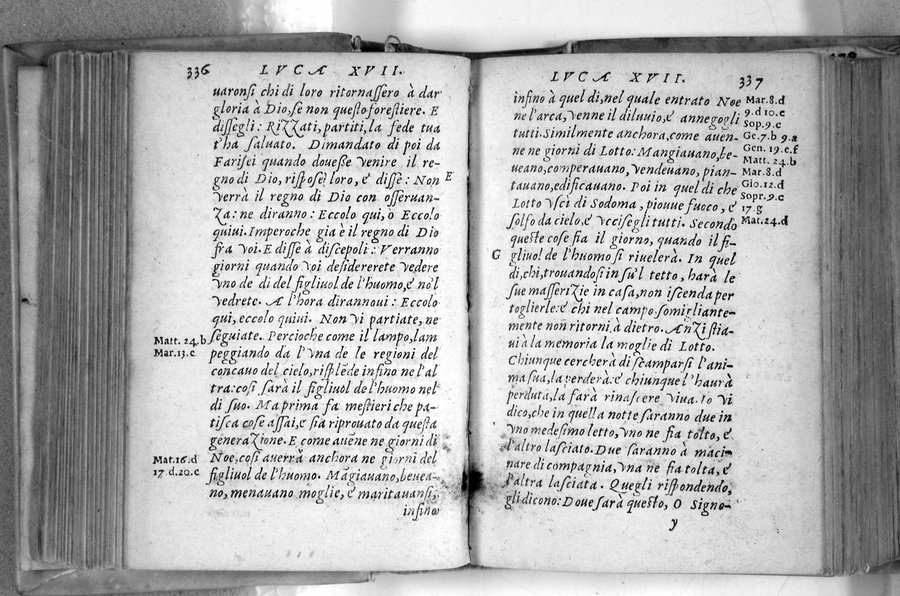 336 LVCÆ XVII.
uaronsi chi di loro ritornaſſero à dar
gloria à Dio, ſe non queſto foreſtiere. E
diſſegli: Rizzati, partiti, la fede tua
t'ha ſaluato. Dimandato di poi da
Fariſei quando doueſſe venire il re-
gno di Dio, riſpoſe loro, e diſſe: Non
E
verrà il regno di Dio con oſſeruan-
za: ne diranno: Eccolo qui, ò Eccolo
quiui. Imperoche gia è il regno di Dio
fra voi. E diſſe à diſcepoli: Verranno
giorni quando voi deſidererete vedere
vno de di del figliuol de l'huomo, e nò'l
vedrete. A l'hora dirannoui: Eccolo
qui, eccolo quiui. Non vi partiate, ne
ſeguiate. Percioche come il lampo, lam
Matt. 24.b
Mar.13.c
peggiando da l'vna de le regioni del
concauo del cielo, riſplẽde infino ne l'al
tra: coſi ſarà il figliuol de l'huomo nel
dì ſuo. Ma prima fa meſtieri che pa-
tiſca coſe aſſai, e ſia riprouato da queſta
generazione. E come auẽne ne giorni di
Noe, coſi auerrà anchora ne giorni del
Mat.16.d
17.d.20.c
figliuol de l'huomo. Mãgiauano, beuea-
no, menauano moglie, e maritauanſi,
infino
LVCÆ XVII. 337
infino à quel di, nel quale entrato Noe
ne l'arca, venne il diluuio, e annegogli
tutti. Similmente anchora, come auen-
ne ne giorni di Lotto: Mangiauano, be-
ueano, comperauano, vendeuano, pian-
tauano, edificauano. Poi in quel dì che
Lotto vſcì di Sodoma, piouue fuoco, e
ſolfo da cielo, e vcciſegli tutti. Secondo
Mar.8.d
9.d 10.e
Sop.9.c
Ge.7.b 9.a
Gen. 19.e.f
Matt. 24.b
Mar.8.d
Gio.12.d
Sopr.9.c
17.g
Mat.24.d
queſte coſe fia il giorno, quando il fi-
gliuol de l'huomo ſi riuelerà. In quel
G
dì, chi, trouandoſi in ſu'l tetto, harà le
ſue maſſerizie in caſa, non iſcenda per
toglierle: e chi nel campo, ſomigliante-
mente non ritorni à dietro. Anzi ſtia-
ui à la memoria la moglie di Lotto.
Chiunque cercherà di ſcamparſi l'ani-
ma ſua, la perderà: e chiunque l'haurà
perduta, la farà rinaſcere viua. Io vi
dico, che in quella notte ſaranno due in
vno medeſimo letto, vno ne fia tolto, e
l'altro laſciato. Due ſaranno à maci-
nare di compagnia, vna ne fia tolta, e
l'altra laſciata. Quegli riſpondendo,
gli dicono: Doue ſarà queſto, O Signo-
y